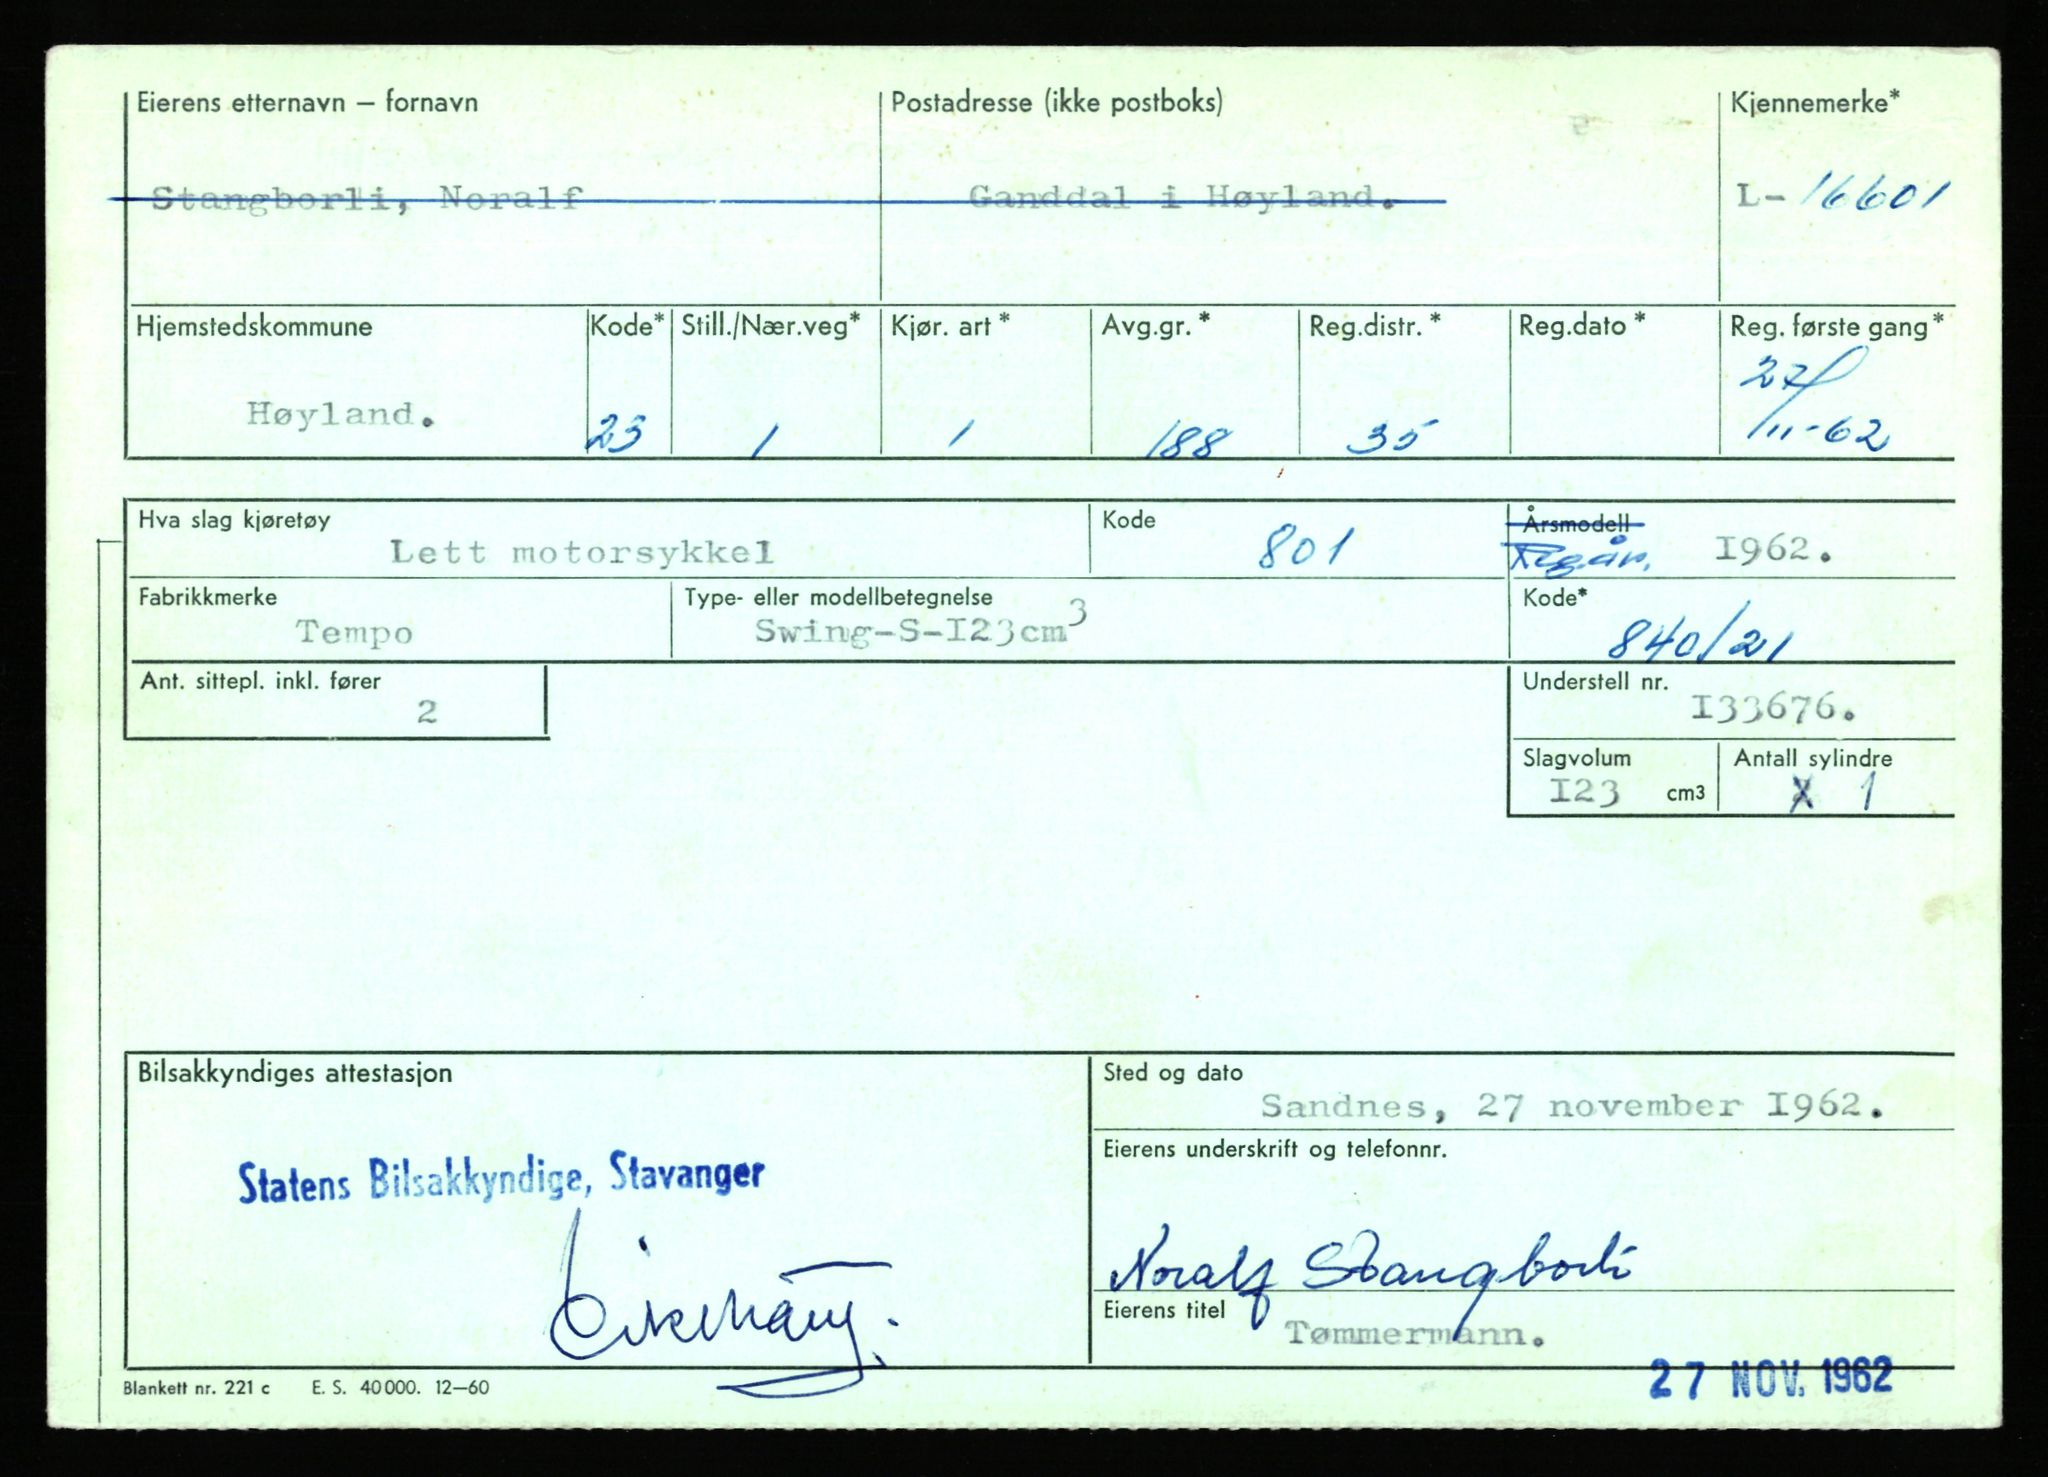 Eierens etternavn – fornavn Postadresse (ikke postboks) Kjennemerke*
Stangborli, Noralf Ganddal i Høyland. L- 16601
Hjemstedskommune Kode* Still./Nær.veg* Kjør. art* Avg.gr.* Reg.distr.* Reg.dato* Reg. første gang*
Høyland. 23 1 1 188 35 27/11-62
Hva slag kjøretøy Kode Årsmodell
Lett motorsykkel 801 Regår. I962.
Fabrikkmerke Type- eller modellbetegnelse Kode*
Tempo Swing-S-I23cm3 840/21
Ant. sittepl. inkl. fører Understell nr.
2 I33676.
Slagvolum Antall sylindre
I23 cm3 1
Bilsakkyndiges attestasjon Sted og dato
Sandnes, 27 november I962.
Eierens underskrift og telefonnr.
Statens Bilsakkyndige, Stavanger
Noralf Stangborli
Eierens titel
Tømmermann.
27 NOV. 1962
Blankett nr. 221 c E. S. 40 000. 12–60